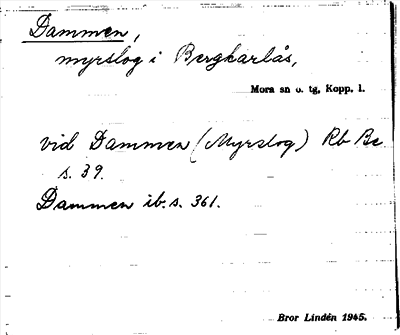 Dammen,
myrslog i Bergkarlås,
Mora sn o. tg, Kopp. l.
vid Dammen (Myrslog) Rb Be
s. 39.
Dammen ib. s. 361.
Bror Lindén 1945.